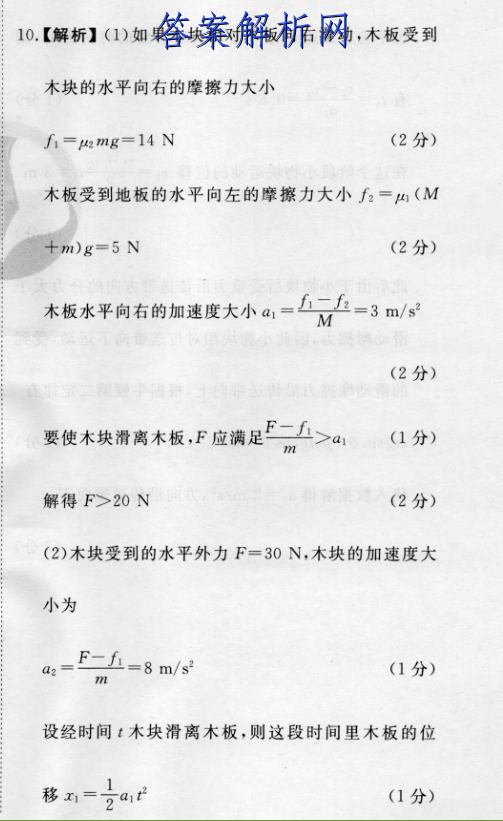 答案解析网
10.【解析】(1)如果木块相对木板向右滑动,木板受到
木块的水平向右的摩擦力大小
f₁=μ₂mg=14 N (2分)
木板受到地板的水平向左的摩擦力大小 f₂=μ₁(M
+m)g=5 N (2分)
木板水平向右的加速度大小 a₁=\frac{f₁-f₂}{M}=3 m/s²
(2分)
要使木块滑离木板,F应满足\frac{F-f₁}{m}>a₁ (1分)
解得 F>20 N (2分)
(2)木块受到的水平外力 F=30 N,木块的加速度大
小为
a₂=\frac{F-f₁}{m}=8 m/s² (1分)
设经时间 t 木块滑离木板,则这段时间里木板的位
移 x₁=\frac{1}{2}a₁t² (1分)